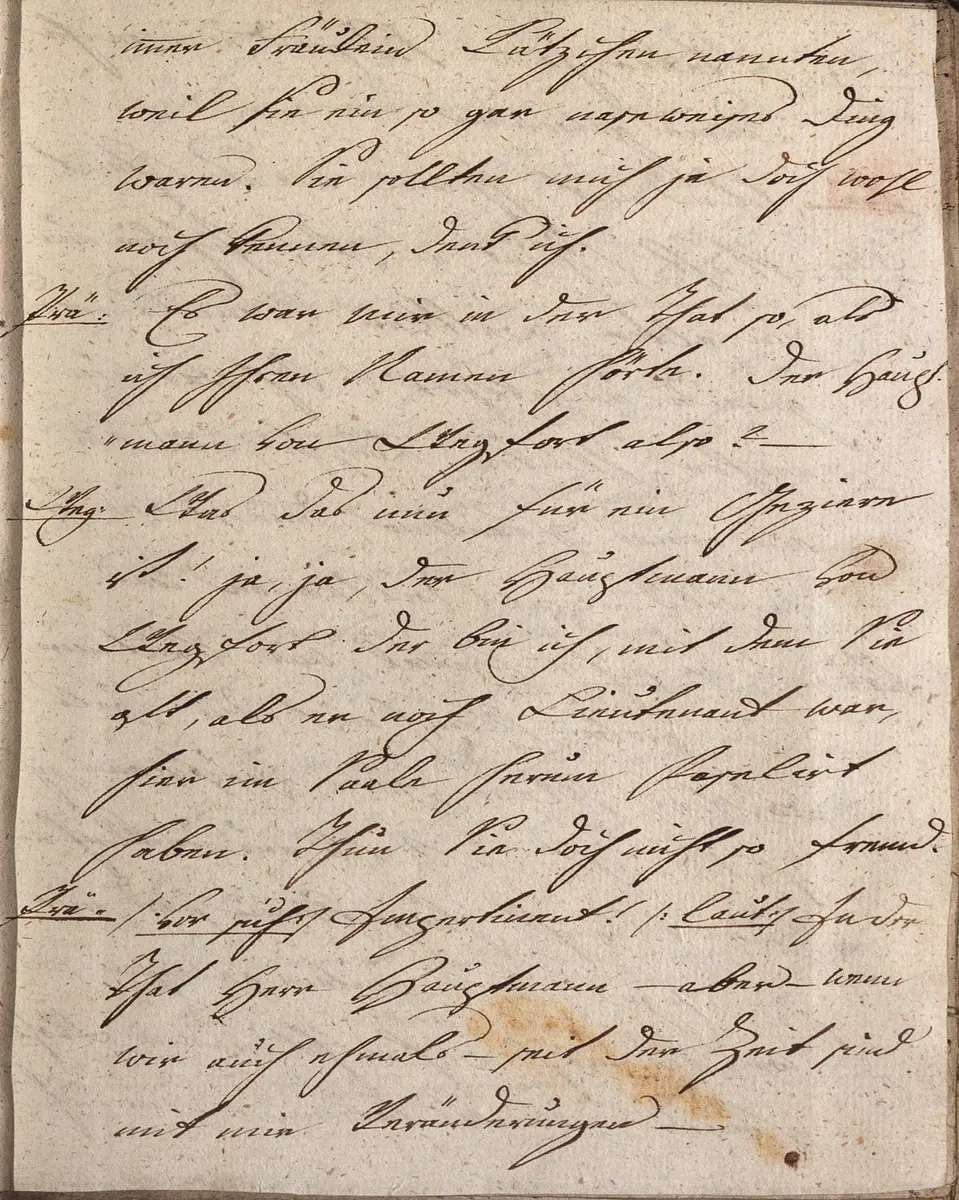 immer Fräulein Lätzchen nannten,
weil Sie ein so gar naseweises Ding
waren. Sie sollten mich ja doch wohl
noch kennen, denk ich.
Prä: Es war mir in der That so, als
ich Ihren Namen hörte. Der Haupt-
"mann von Wegfort also? —
Weg: Was das nun für ein Geziere
ist! ja, ja, der Hauptmann von
Wegfort der bin ich, mit dem Sie
oft, als er noch Lieutenant war,
hier im Saale herum haselirt
haben. Thun Sie doch nicht so fremd.
Prä: /: vor sich :/ Impertinent! /: laut :/ In der
That Herr Hauptmann — aber — wenn
wir auch ehmals — seit der Zeit sind
mit mir Veränderungen —